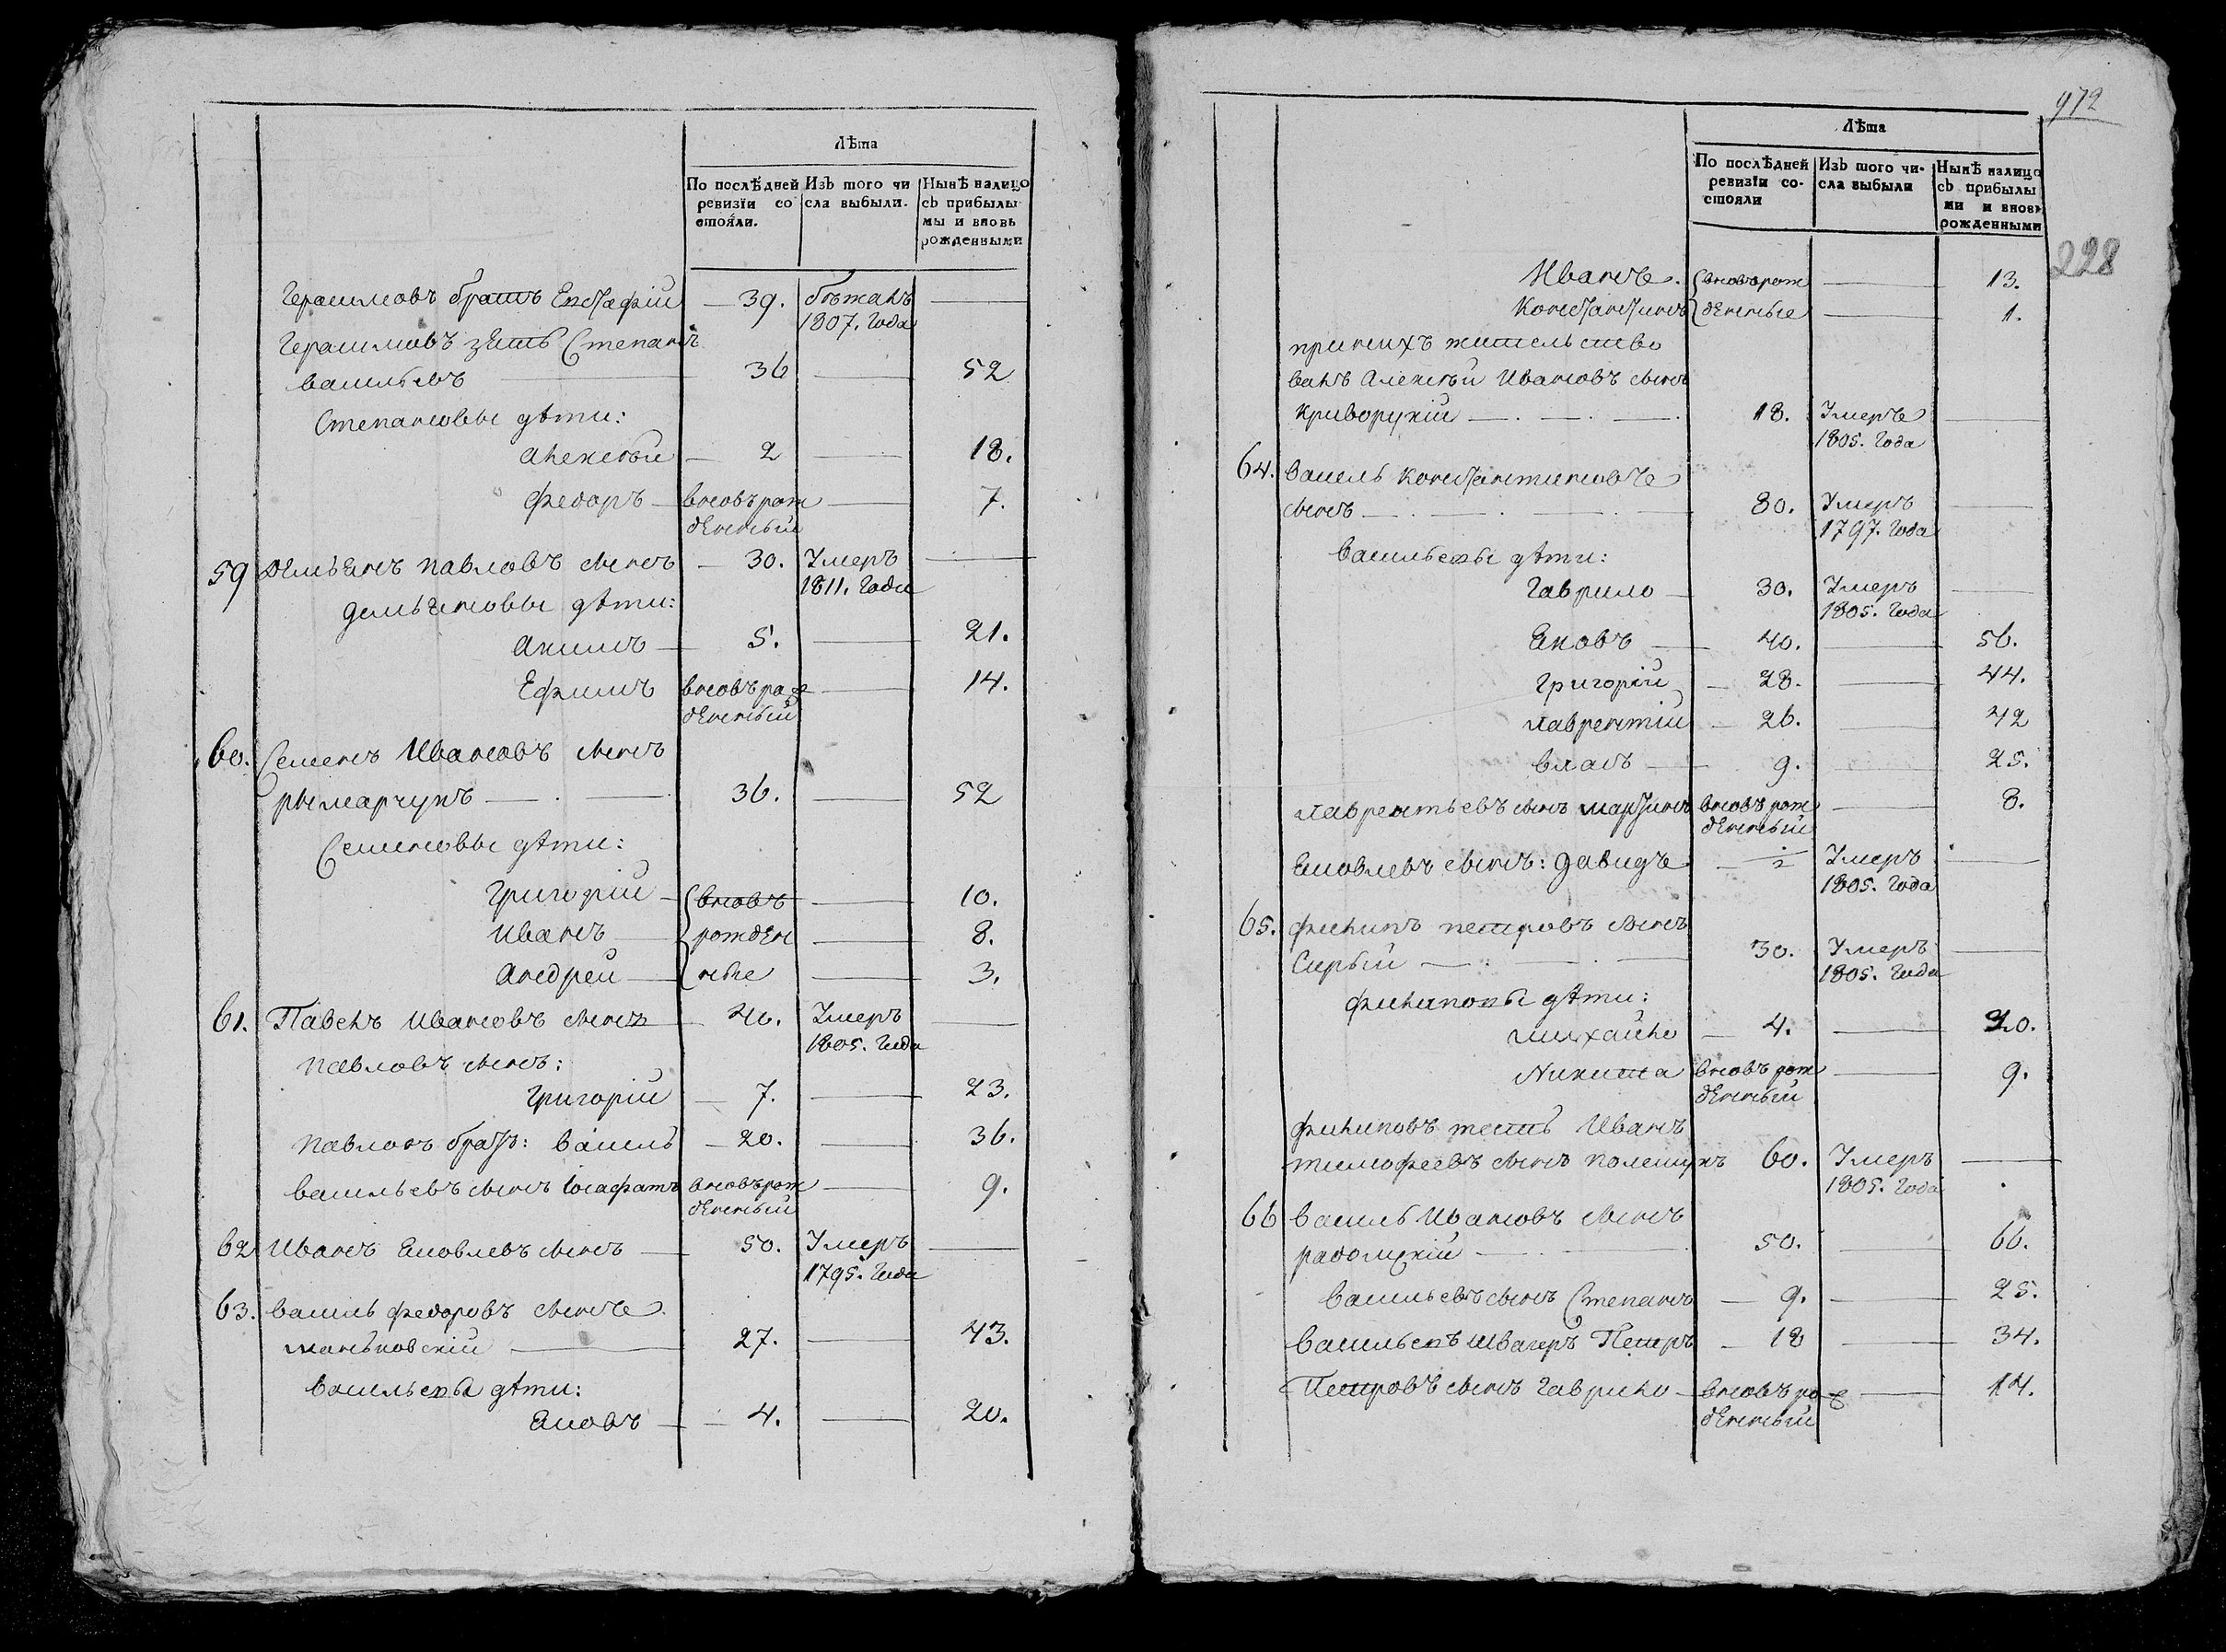 Лѣта
По послѣдней ревизїи со стояли.
Изъ того чи сла выбыли.
Нынѣ налицо съ прибылы мы и вновь рожденными
Герасимовъ братъ Евстафій — 39. бѣжалъ —
1807. Года
Герасимовъ зять Степанъ
васильевъ — 36 — 52
Степановы дѣти:
Алексѣй — 2 — 18.
Федоръ — вновь рож — 7.
денный
59 Демьянъ павловъ сынъ — 30. Умеръ —
1811. Года
демьяновы дѣти:
Акимъ — 5. — 21.
Ефимъ вновь рож — 14.
денный
60. Семенъ Ивановъ сынъ
рымарчукъ — 36. — 52
Семеновы дѣти:
Григорій — вновь — 10.
Иванъ — рожден — 8.
Андрей — ные — 3.
61. Павелъ Ивановъ сынъ — 40. Умеръ —
1805. Года
павловъ сынъ:
Григорій — 7. — 23.
павловъ братъ: василь — 20. — 36.
васильевъ сынъ Іосафатъ вновь рож — 9.
денный
62 Иванъ Яковлевъ сынъ — 50. Умеръ —
1795. Года
63. василь федоровъ сынъ
маньковскій — 27. — 43.
васильевы дѣти:
Яковъ — 4. — 20.
972
Лѣта
По послѣдней ревизїи со- стояли
Изъ того чи- сла выбыли
Нынѣ налицо съ прибылы ми и вновь рожденными
228
Иванъ. вновь рож — 13.
Константинъ денные — 1.
при нихъ жительство
валъ Алексѣй Ивановъ сынъ
криворукій — 18. Умеръ —
1805. Года
64. василь Константиновъ
сынъ — 80. Умеръ —
1797. Года
васильевы дѣти:
Гаврило — 30. Умеръ —
1805. Года
Яковъ — 40. — 56.
Григорій — 28. — 44.
лаврентій — 26. — 42
власъ — 9. — 25.
лаврентьевъ сынъ мартинъ вновь рож — 8.
денный
Яковлевъ сынъ: давидъ — Умеръ —
1805. Года
65. филипъ петровъ сынъ
Сирый — 30. Умеръ —
1805. Года
филиповы дѣти:
михайло — 4. — 20.
Никита вновь рож — 9.
денный
филиповъ тесть Иванъ
тимофеевъ сынъ полещукъ 60. Умеръ —
1805. Года
66 василь Ивановъ сынъ
радомскій — 50. — 66.
васильевъ сынъ Степанъ — 9. — 25.
васильевъ швагеръ Петръ — 18 — 34.
Петровъ сынъ Гаврило — вновь рож — 14.
денный